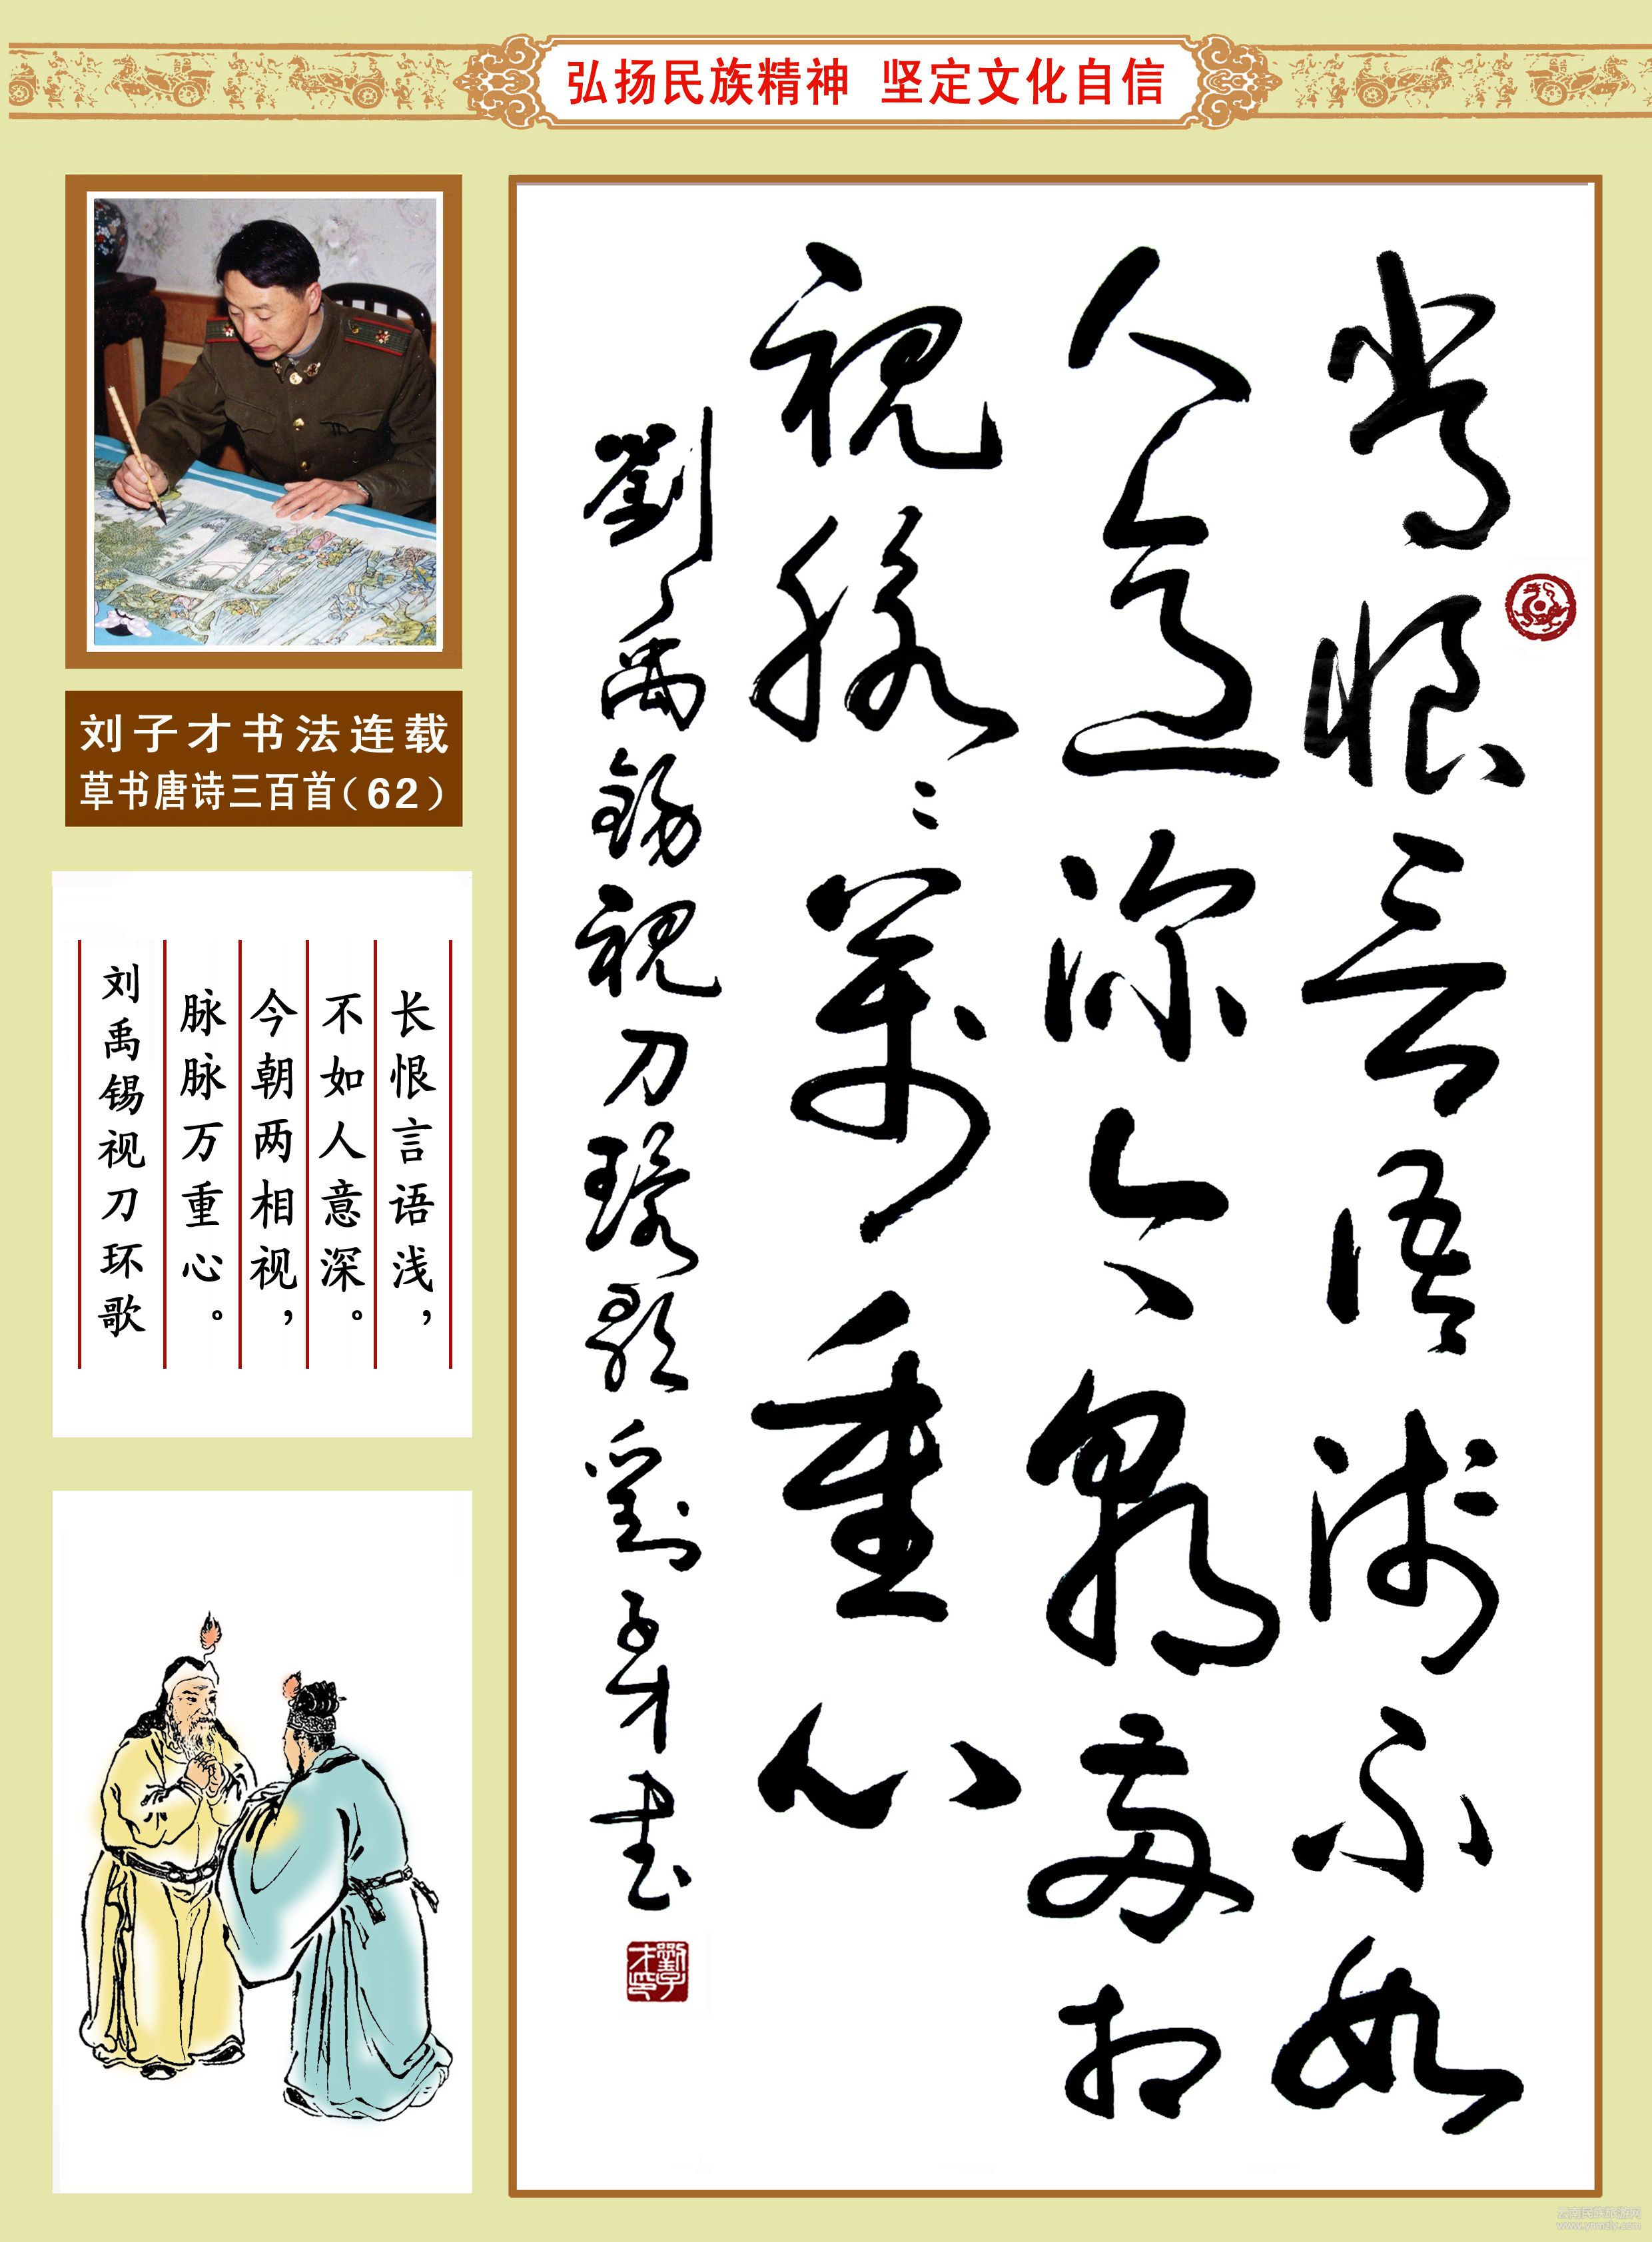 弘扬民族精神 坚定文化自信
常恨言语浅不如
人意深今朝两相
视脉々万重心
劉禹锡视刀環歌劉子才书
劉子才印
刘子才书法连载
草书唐诗三百首（62）
长恨言语浅，
不如人意深。
今朝两相视，
脉脉万重心。
刘禹锡视刀环歌
www.ynmzly.com